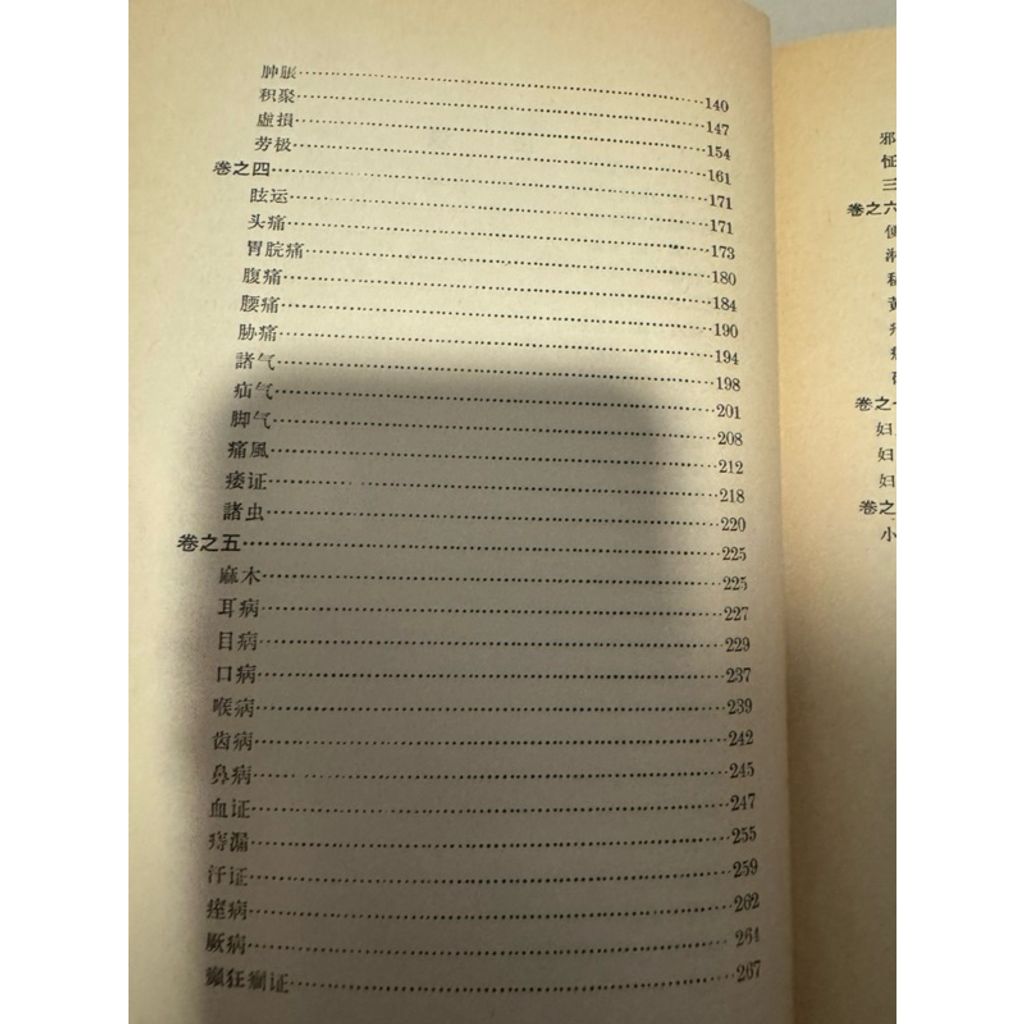 肿脹……140
积聚……147
虛損……154
劳极……161
卷之四……171
眩运……171
头痛……173
胃脘痛……180
腹痛……184
腰痛……190
胁痛……194
諸气……198
疝气……201
脚气……208
痛風……212
痿证……218
諸虫……220
卷之五……225
麻木……225
耳病……227
目病……229
口病……237
喉病……239
齿病……242
鼻病……245
血证……247
痔漏……255
汗证……259
痓病……262
厥病……264
癲狂癇证……267
邪
怔
三
卷之六
卷之
妇
妇
妇
卷之
小